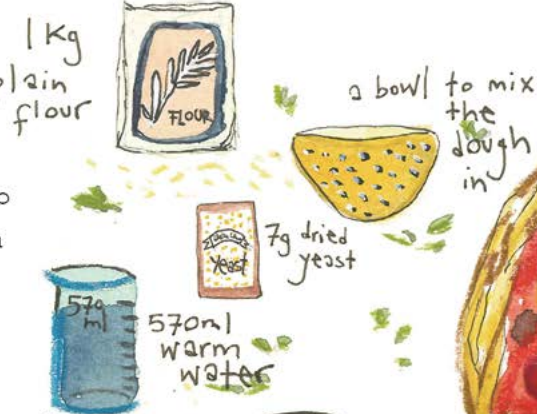 1 Kg
plain
flour
FLOUR
a bowl to mix
the
dough
in
7g dried
yeast
Yeast
570
ml
570ml
warm
water